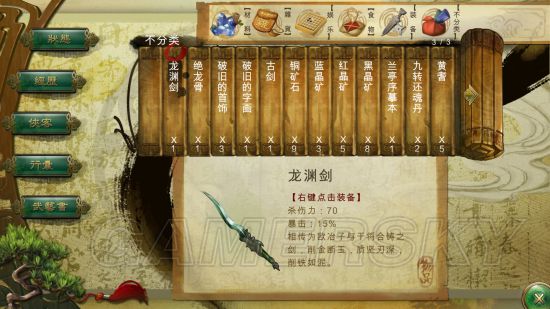 狀態
經歷
俠客
行囊
武藝書
材料
雜貨
娱乐
食物
装备
不分类
3/3
不分类
龙渊剑 X1
绝龙骨 X1
破旧的首饰 X3
破旧的字画 X1
古剑 X1
铜矿石 X9
蓝晶矿 X3
红晶矿 X5
黑晶矿 X8
兰亭序摹本 X1
九转还魂丹 X2
黄耆 X5
龙渊剑
【右键点击装备】
杀伤力：70
暴击：15%
相传为欧冶子与干将合铸之
剑，削金断玉，质坚刃深，
削铁如泥。
物品
GAMERSKY